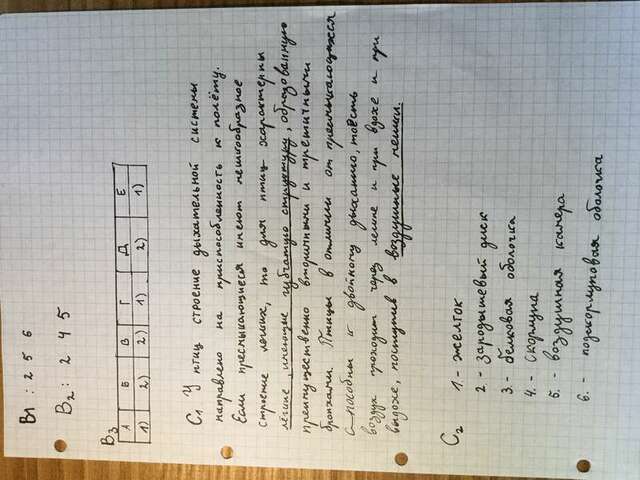 В1 : 2 5 6
В2 : 2 4 5
В3
А Б В Г Д Е
1) 2) 2) 1) 2) 1)
С1 У птиц строение дыхательной системы
направлено на приспособленность к полёту.
Если пресмыкающиеся имеют мешкообразное
строение легких, то для птиц характерны
лёгкие, имеющие губчатую структуру, образованную
преимущественно вторичными и третичными
бронхами. Птицы в отличии от пресмыкающихся
способны к двойному дыханию, то есть
воздух проходит через легкие и при вдохе и при
выдохе, поступив в воздушные мешки.
С2
1 - желток
2 - зародышевый диск
3. - белковая оболочка
4. - скорлупа
5. - воздушная камера
6. - подскорлуповая оболочка